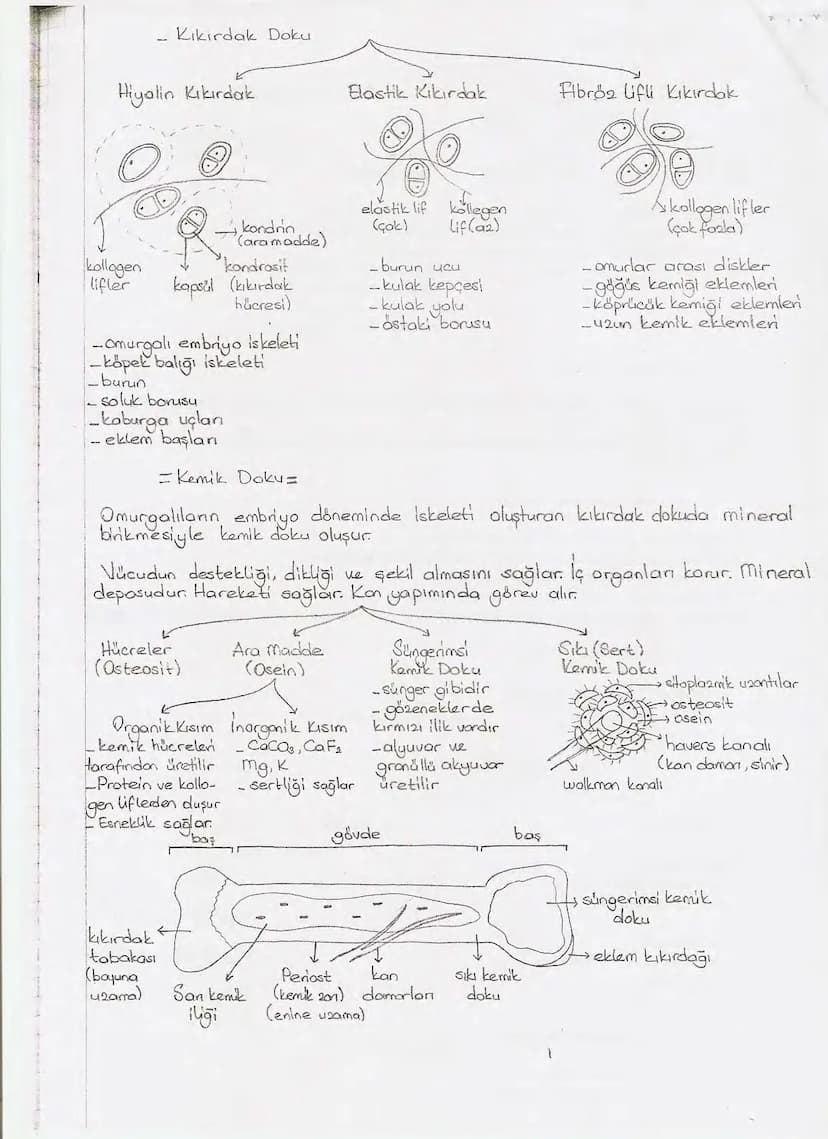 - Kıkırdak Doku
Hiyalin Kıkırdak
Elastik Kıkırdak
Fibröz Lifli Kıkırdak
kondrin
(ara madde)
kollogen
lifler
kapsül
kondrosit
(kıkırdak
hücresi)
- omurgalı embriyo iskeleti
- köpek balığı iskeleti
- burun
- soluk borusu
- kaburga uçları
- eklem başları
elastik lif
(çok)
kollegen
lif (az)
- burun ucu
- kulak kepçesi
- kulak yolu
- östaki borusu
kollogen lifler
(çok fazla)
- omurlar arası diskler
- göğüs kemiği eklemleri
- köprücük kemiği eklemleri
- uzun kemik eklemleri
= Kemik Doku =
Omurgalıların embriyo döneminde iskeleti oluşturan kıkırdak dokuda mineral
birikmesiyle kemik doku oluşur.
Vücudun destekliği, dikliği ve şekil almasını sağlar. İç organları korur. Mineral
deposudur. Hareketi sağlar. Kan yapımında görev alır.
Hücreler
(Osteosit)
Ara Madde
(Osein)
Organik Kısım
- kemik hücreleri
tarafından üretilir
- Protein ve kollo-
gen liflerden oluşur
- Esneklik sağlar.
İnorganik Kısım
- CaCO3, CaF2
Mg, K
- sertliği sağlar
Süngerimsi
Kemik Doku
- sünger gibidir
- gözeneklerde
kırmızı ilik vardır
- alyuvar ve
granüllü akyuvar
üretilir
Sıkı (Sert)
Kemik Doku
sitoplazmik uzantılar
osteosit
osein
havers kanalı
(kan damarı, sinir)
wolkman kanalı
baş
gövde
baş
süngerimsi kemik
doku
eklem kıkırdağı
kıkırdak
tabakası
(boyuna
uzama)
Sarı kemik
iliği
Periost
(kemik zarı)
(enine uzama)
kan
damarları
sıkı kemik
doku
1